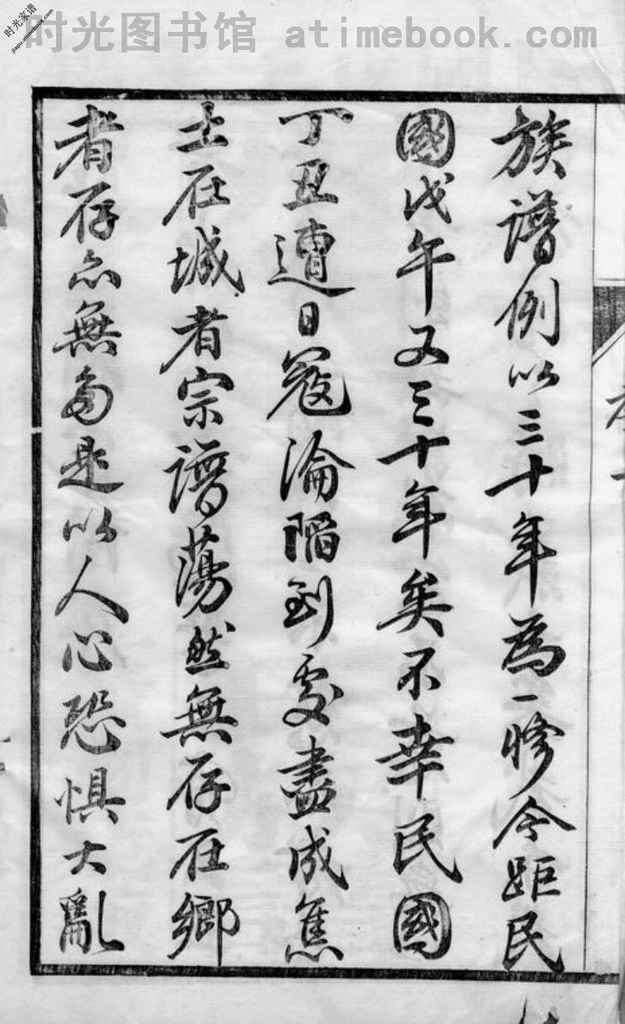 时光图书馆 atimebook.com
时光家谱
族譜例以三十年為一修今距民
國戊午又三十年矣不幸民國
丁丑遭日寇淪陷到處盡成焦
土在城者宗譜蕩然無存在鄉
者存亦無多是以人心恐惧大亂